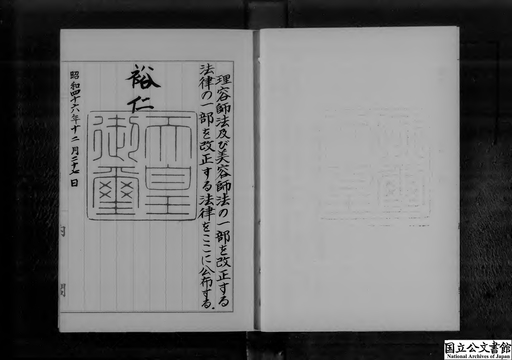 理容師法及び美容師法の一部を改正する
法律の一部を改正する法律をここに公布する。
裕仁
天皇
御璽
昭和四十六年十二月二十七日
国立公文書館
National Archives of Japan